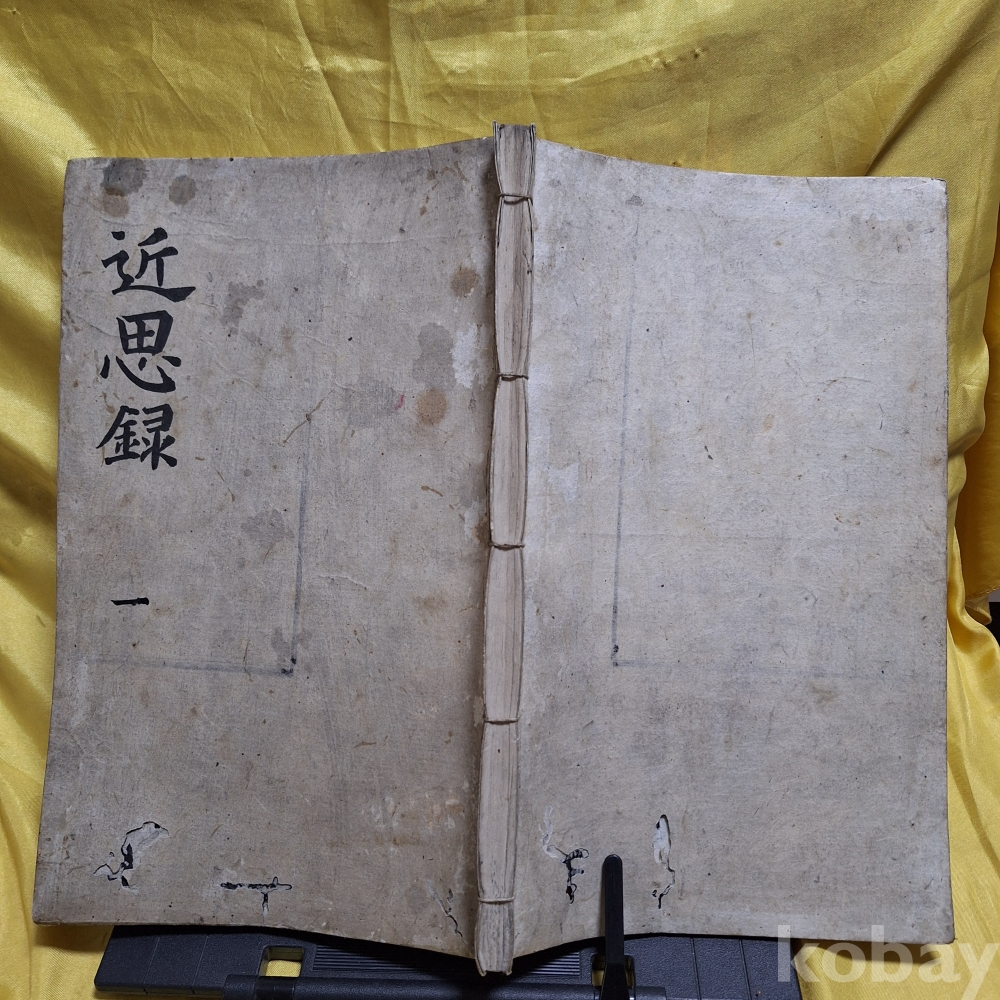 近思録
一
kobay